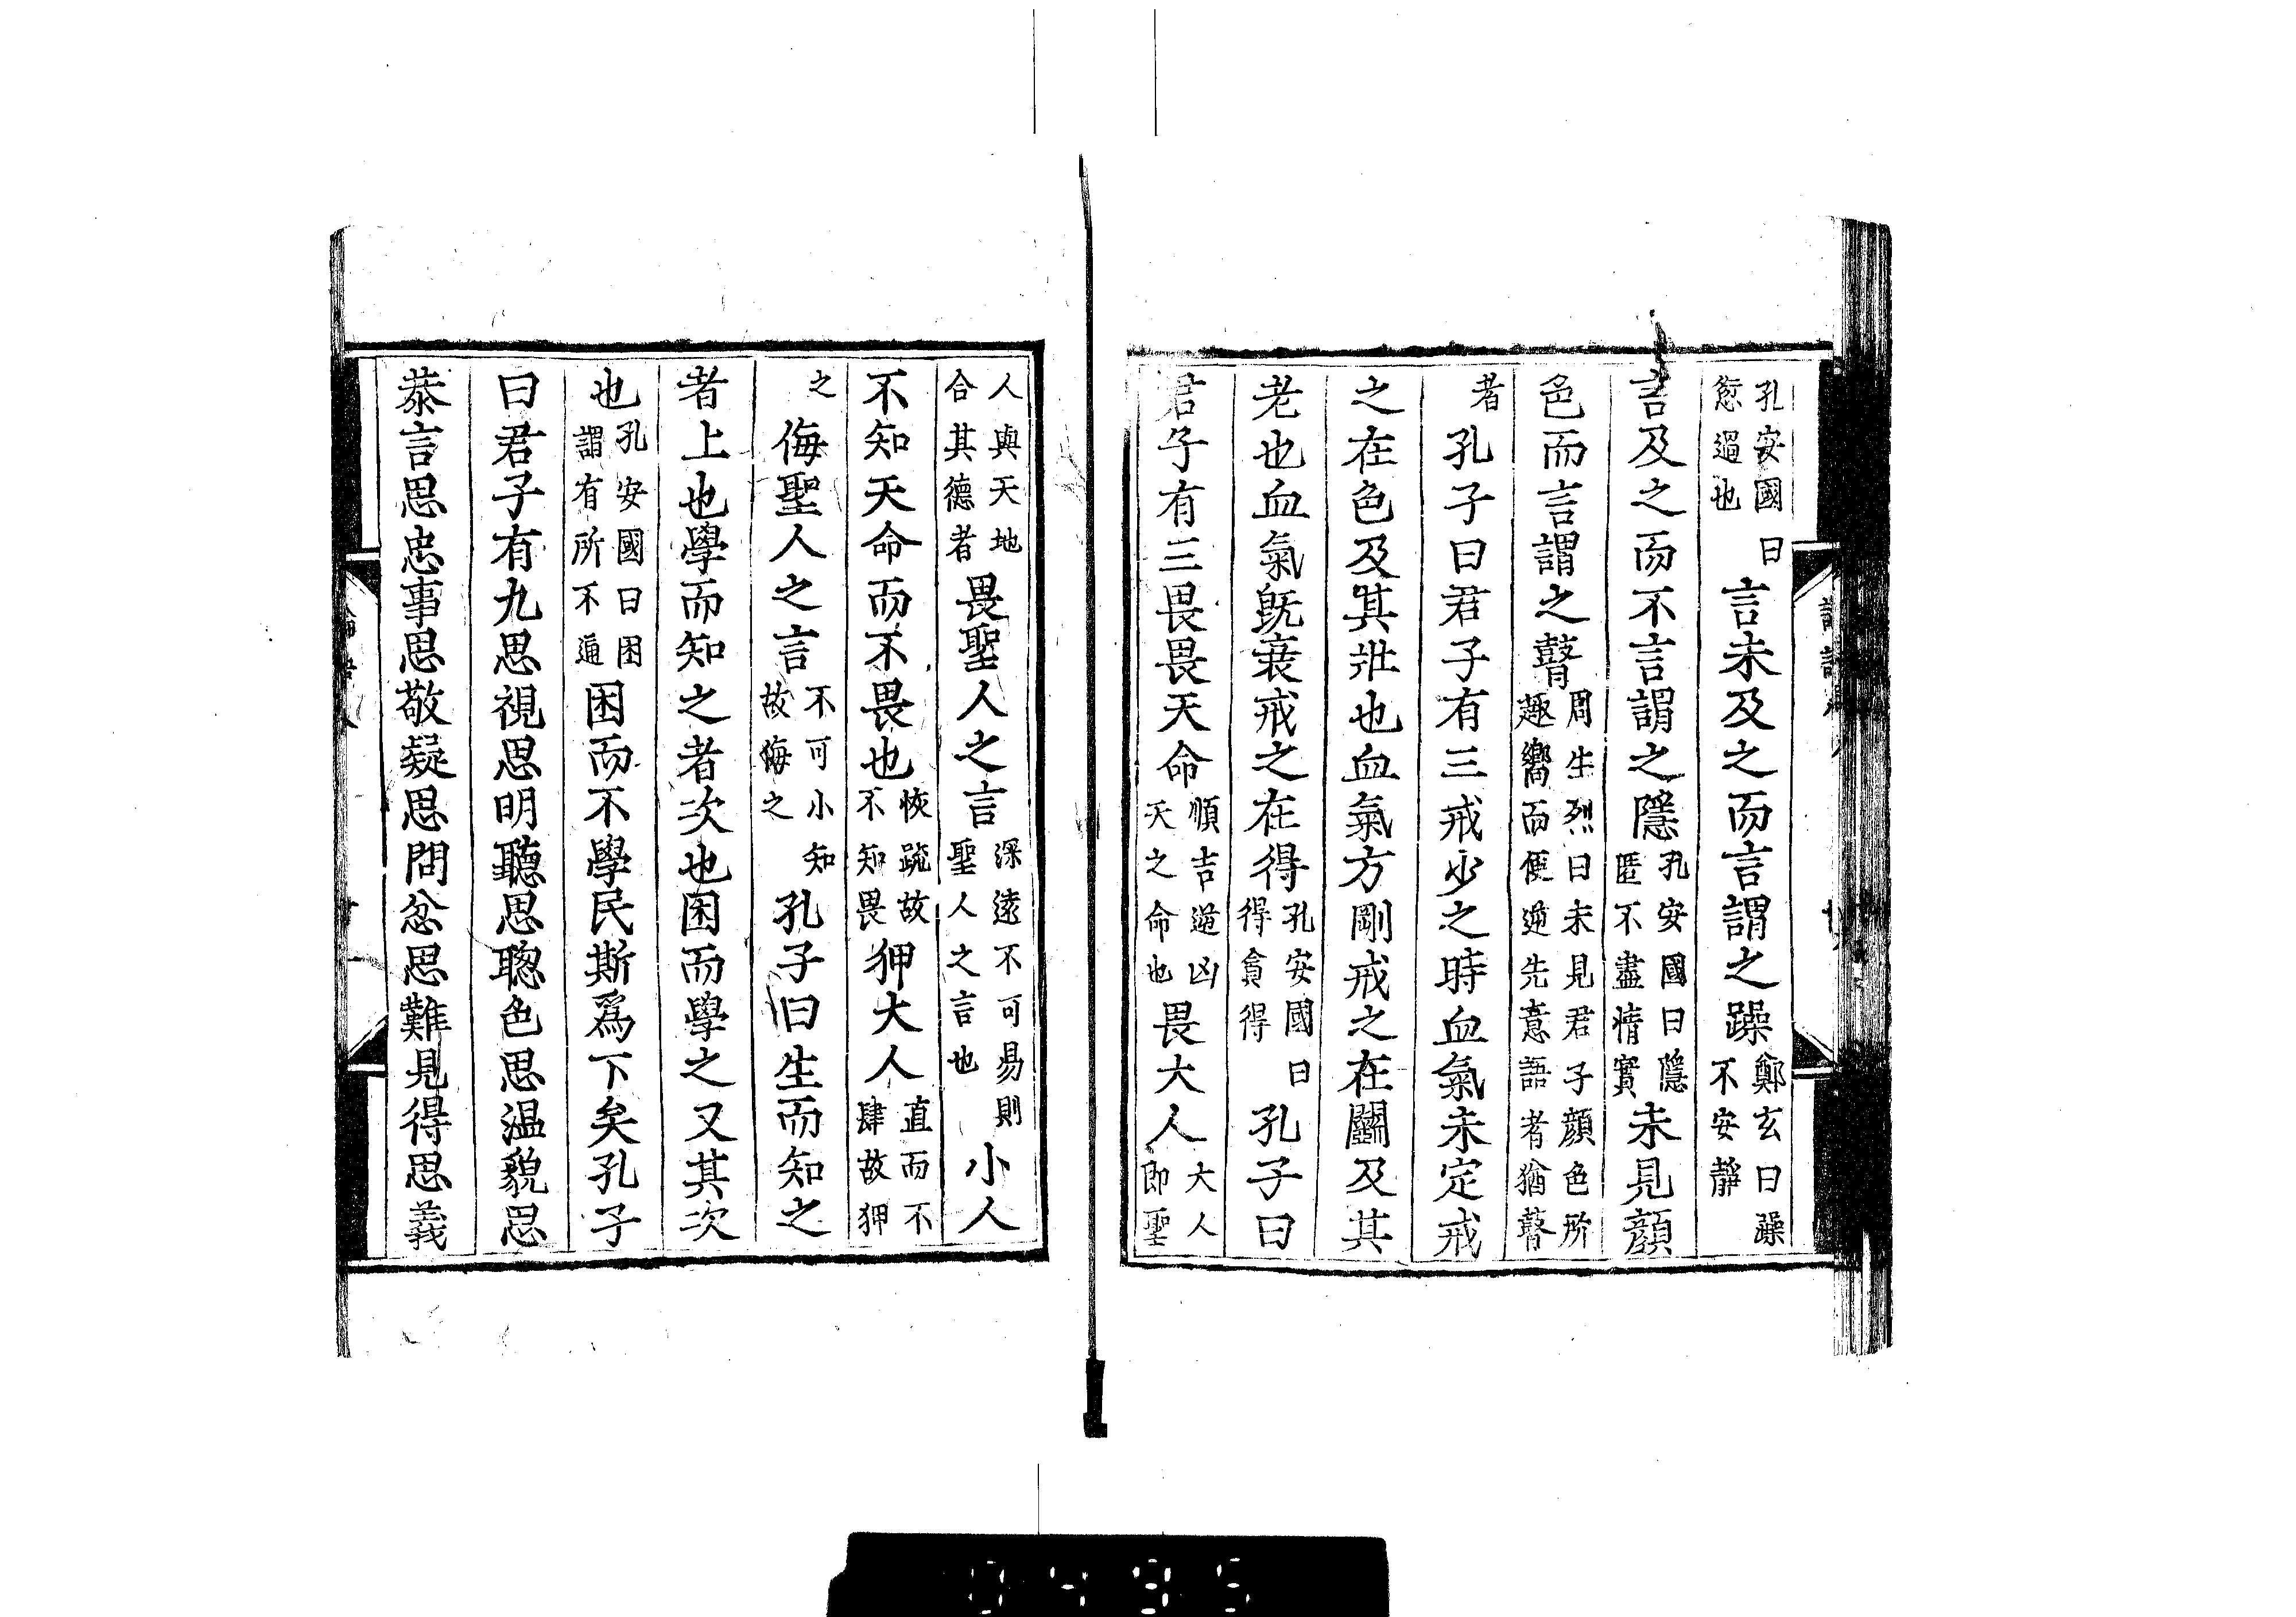 孔安國曰愆過也言未及之而言謂之躁鄭玄曰躁不安靜
言及之而不言謂之隱孔安國曰隱匿不盡情實未見顔
色而言謂之瞽周生烈曰未見君子顔色所趣嚮而便逆先意語者猶瞽
者孔子曰君子有三戒少之時血氣未定戒
之在色及其壯也血氣方剛戒之在鬭及其
老也血氣既衰戒之在得孔安國曰得貪得孔子曰
君子有三畏畏天命順吉逆凶天之命也畏大人大人即聖
人與天地合其德者畏聖人之言深遠不可易則聖人之言也小人
不知天命而不畏也恢疏故不知畏狎大人直而不肆故狎
之侮聖人之言不可小知故侮之孔子曰生而知之
者上也學而知之者次也困而學之又其次
也孔安國曰困謂有所不通困而不學民斯爲下矣孔子
曰君子有九思視思明聽思聰色思温貌思
恭言思忠事思敬疑思問忿思難見得思義
0495